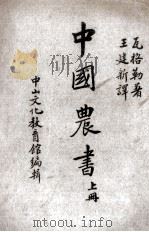 瓦格勒著
王建新譯
中國農書 上冊
中山文化教育館編輯
mtoou.info